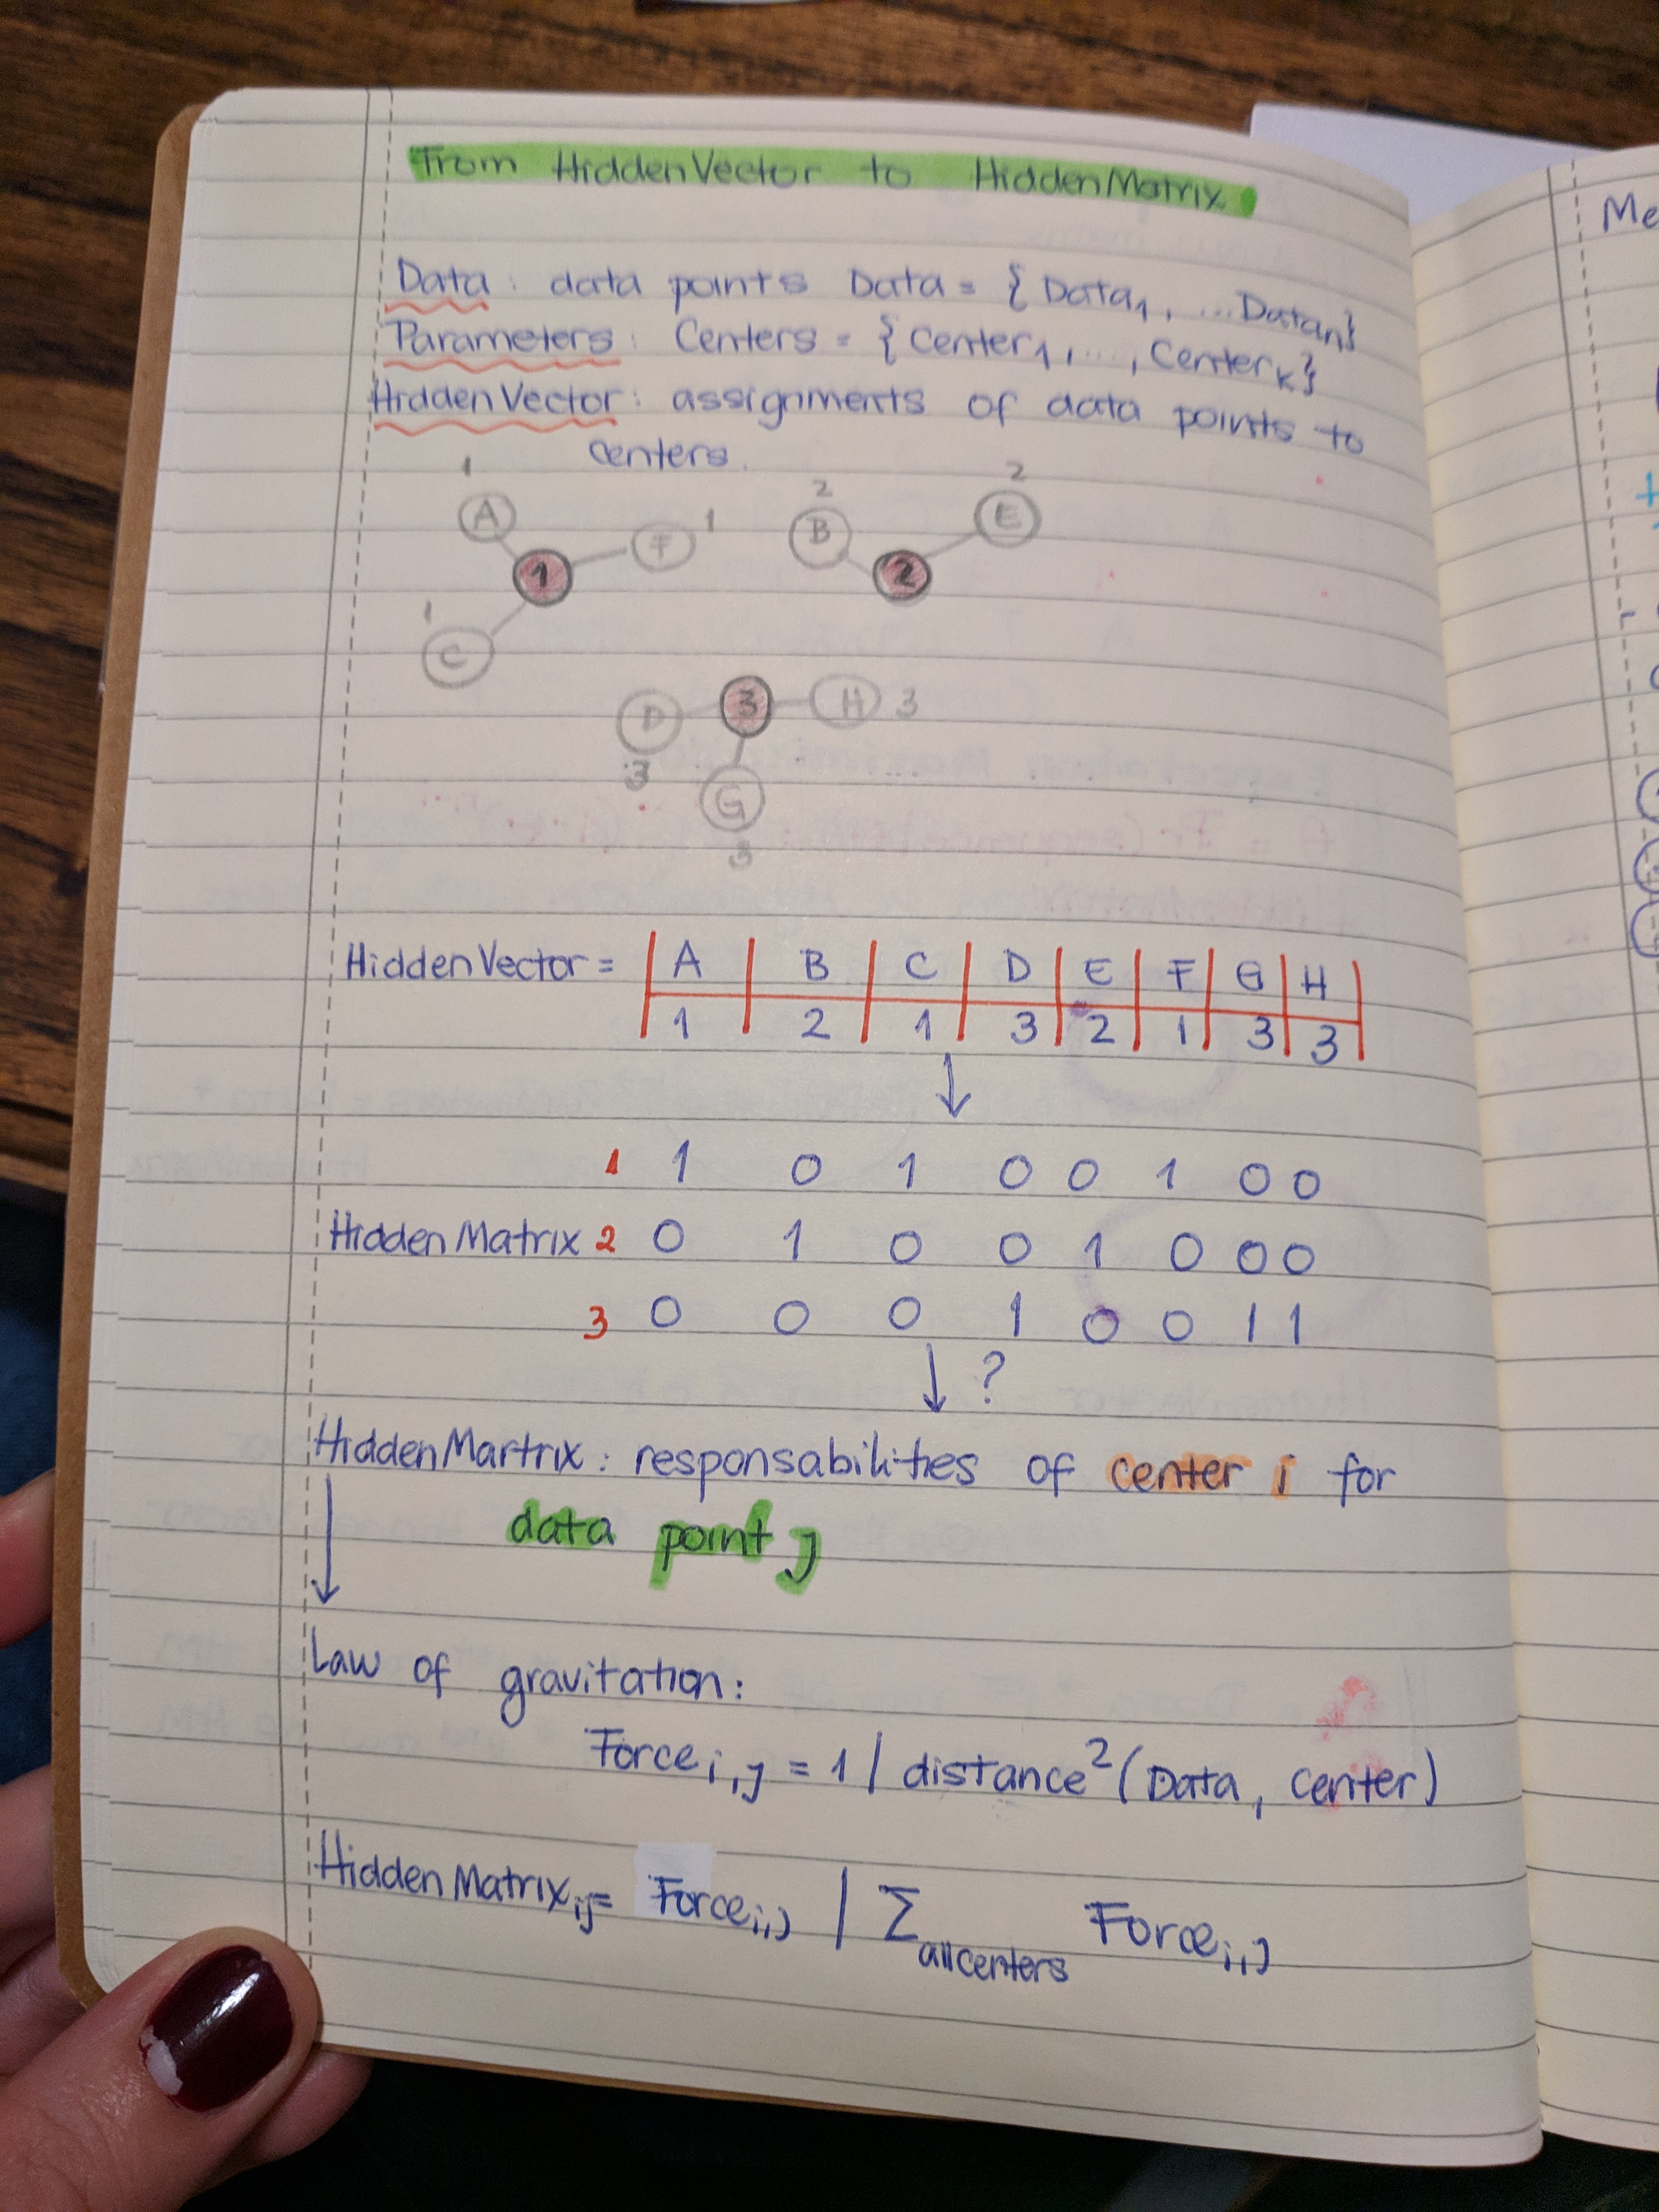 From HiddenVector to HiddenMatrix
Data: data points Data = {Data1, ...Datan}
Parameters: Centers = {Center1, ..., Centerk}
HiddenVector: assignments of data points to
centers.
1 2 2
A F 1 B E
1 2
1
C
D 3 H 3
3 G
3
HiddenVector = | A | B | C | D | E | F | G | H |
| 1 | 2 | 1 | 3 | 2 | 1 | 3 | 3 |
↓
1 1 0 1 0 0 1 0 0
HiddenMatrix 2 0 1 0 0 1 0 0 0
3 0 0 0 1 0 0 1 1
↓ ?
HiddenMartrix: responsabilities of center i for
data point j
Law of gravitation:
Force i,j = 1 / distance² (Data, Center)
HiddenMatrix ij = Force i,j / Σ all centers Force i,j
Me